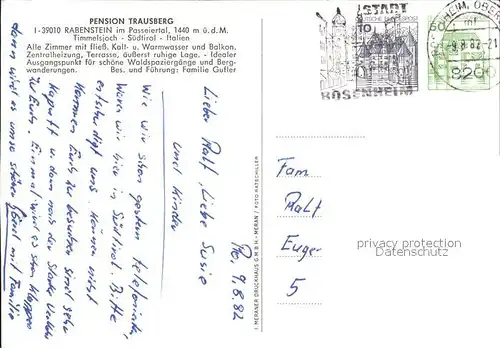 PENSION TRAUSBERG
I - 39010 RABENSTEIN im Passeiertal, 1440 m ü. d. M.
Timmelsjoch - Südtirol - Italien
Alle Zimmer mit fließ. Kalt- u. Warmwasser und Balkon,
Zentralheizung, Terrasse, äußerst ruhige Lage. - Idealer
Ausgangspunkt für schöne Waldspaziergänge und Berg-
wanderungen. Bes. und Führung: Familie Gufler
STADT
ROSENHEIM
10
-9.8.82-21
820
Ro, 9.8.82
Liebe Ralf, Liebe Susie
und Kinder
Wie wir schon gestern telefonisch,
waren wir hier in Südtirol. Bitte
entschuldigt uns. Können nicht
kommen Euch zu besuchen sind sehr
kaputt u. dann noch der starke Verkehr
zu Euch. Einmal wird es schon klappen
dann wird es umso schöner. mit Familie
I. MERANER DRUCKHAUS G.M.B.H. - MERAN / FOTO HATSCHILLER
Fam
Ralf
Euger
5
privacy protection
Datenschutz